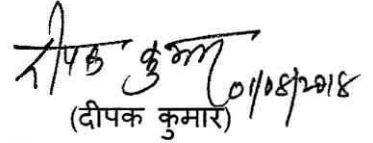 दीपक कुमार 01/08/2018
(दीपक कुमार)